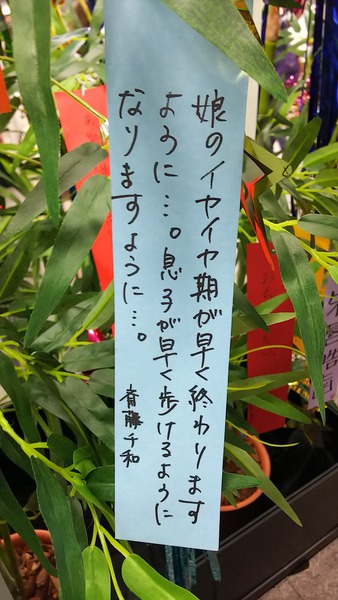 娘のイヤイヤ期が早く終わります
ように…。息子が早く歩けるように
なりますように…。
斉藤千和